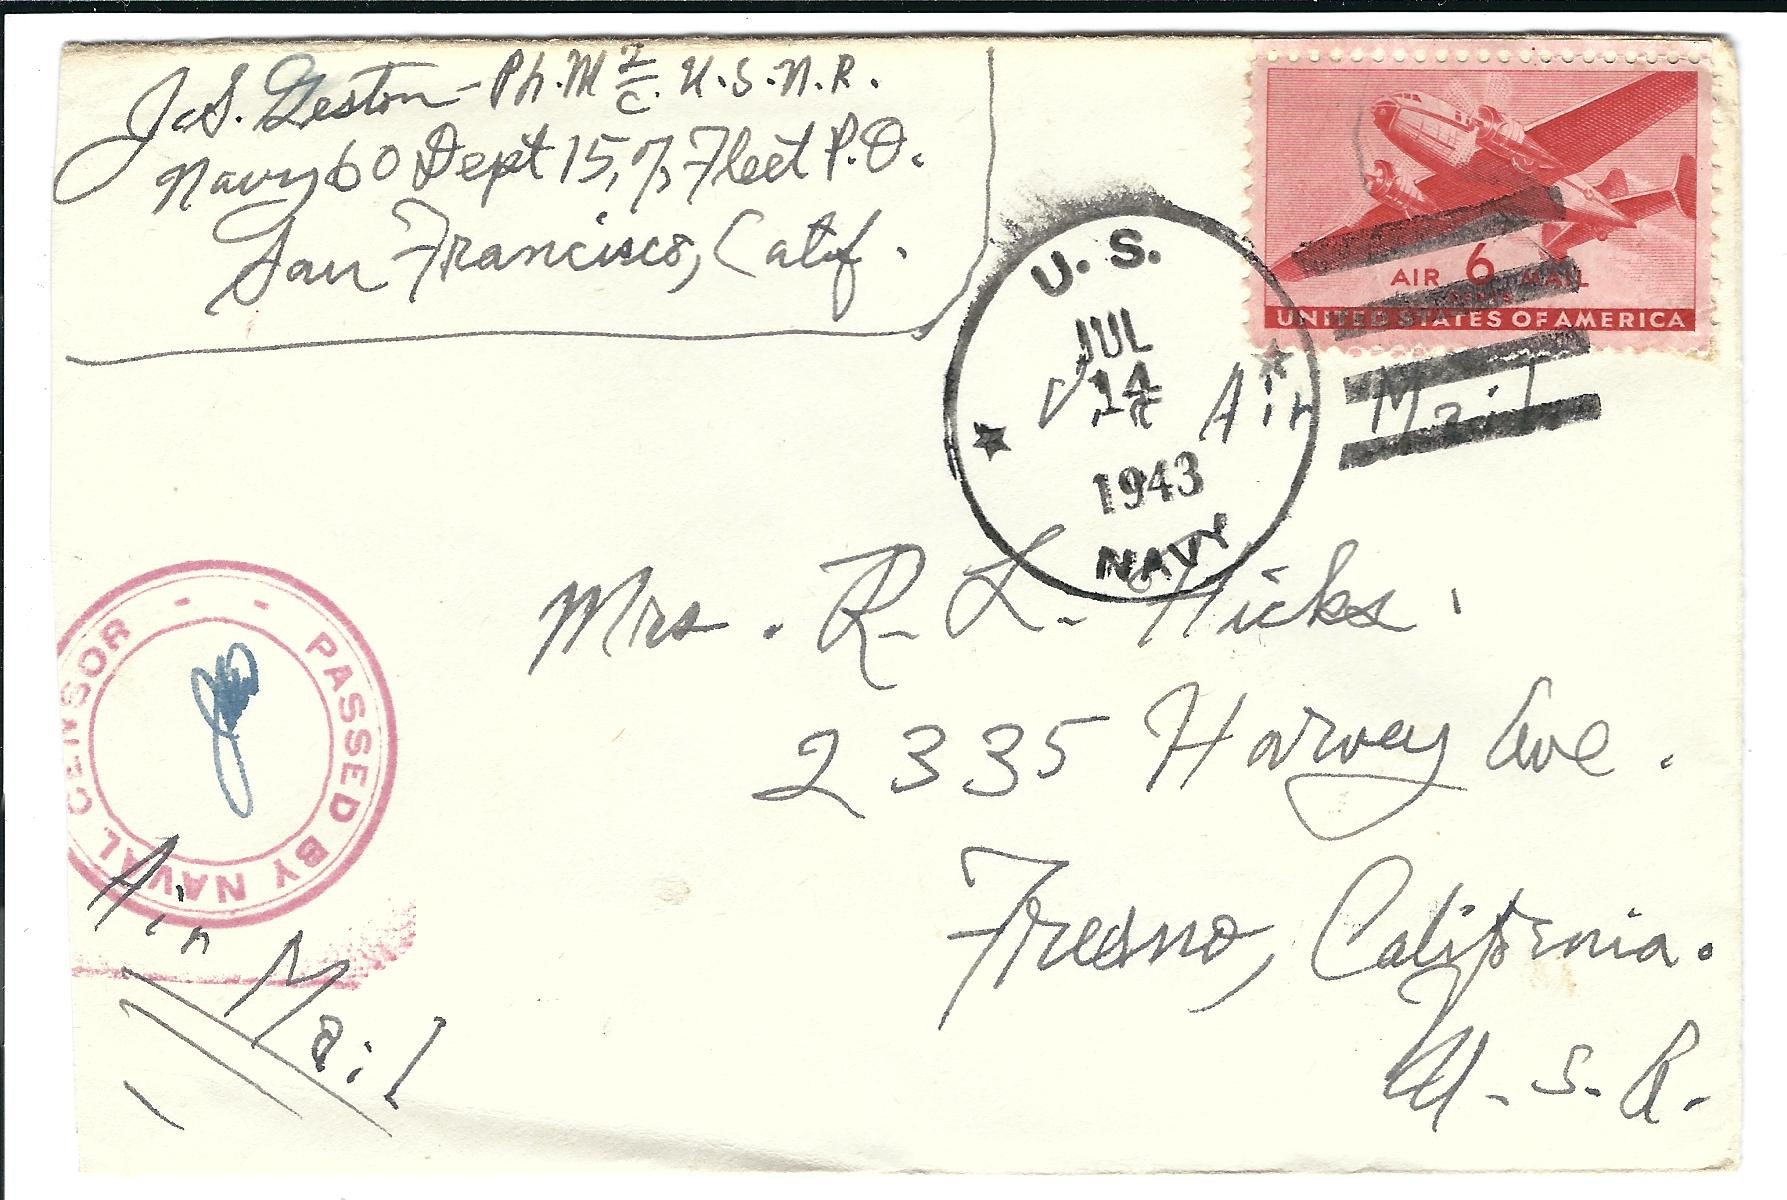 J.S. Geston - Ph.M 2/c. U.S.N.R.
Navy 60 Dept 15, % Fleet P.O.
San Francisco, Calif.
AIR 6 MAIL
CENTS
UNITED STATES OF AMERICA
U.S.
JUL
14
1943
NAVY
Via Air Mail
Mrs. R. L. Hicks.
2335 Harvey Ave.
Fresno, California.
U.S.A.
PASSED BY NAVAL CENSOR
Air Mail